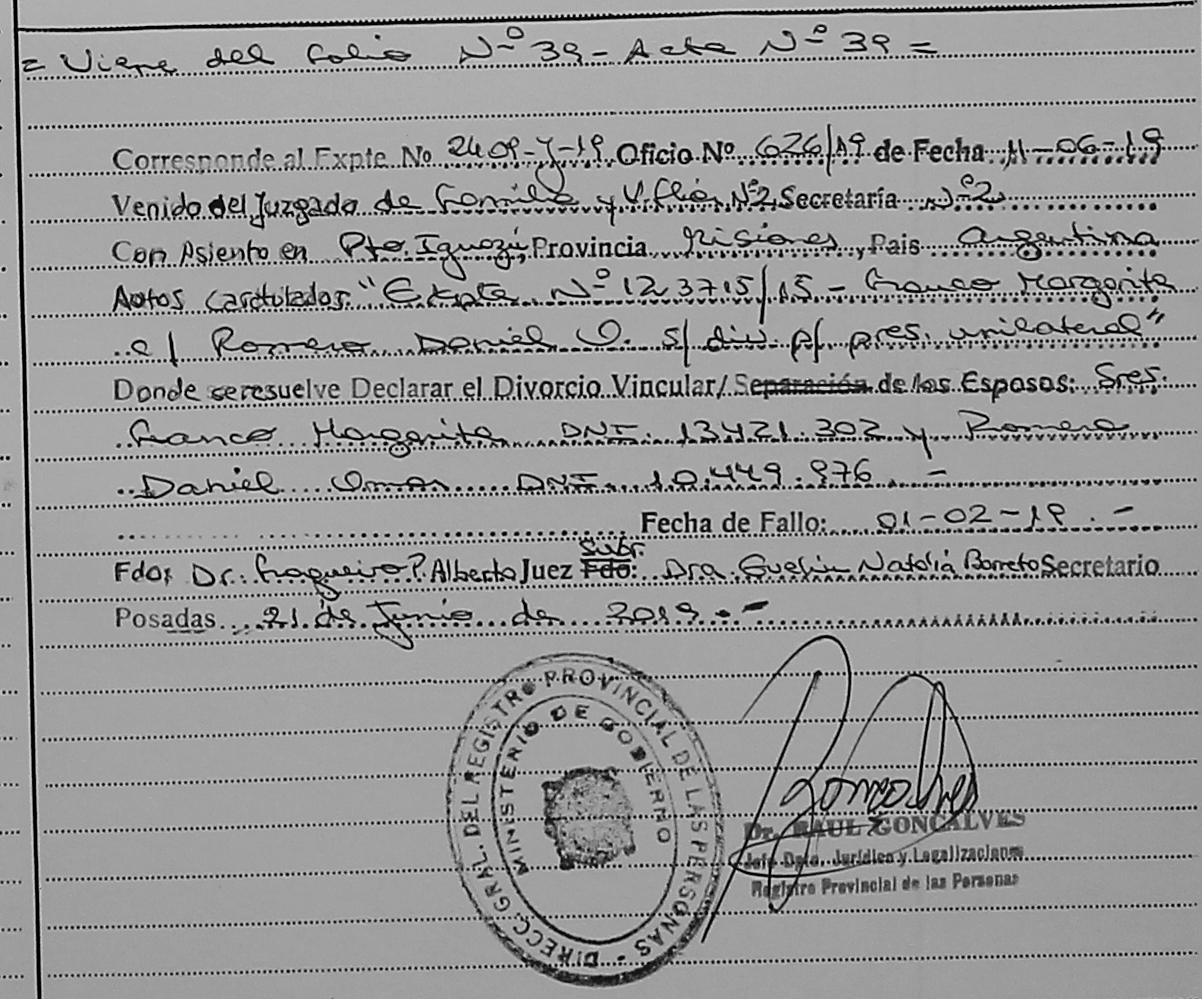 = Viene del Folio Nº 39 - Acta Nº 39 =
Corresponde al Expte. No 2409-Y-19 Oficio Nº 626/19 de Fecha 11-06-19
Venido del Juzgado de Familia y V. Flia. Nº2, Secretaría Nº2
Con Asiento en Pto. Iguazú, Provincia Misiones, Pais Argentina
Autos Caratulados: "Expte Nº 123715/15 - Franco Margarita
c/ Romero Daniel O. s/ div. p/ pres. unilateral"
Donde se resuelve Declarar el Divorcio Vincular/ Separación de los Esposos: Sres.
Franco Margarita DNI. 13.421.302 y Romero
Daniel Omar DNI. 10.449.976. -
Fecha de Fallo: 01-02-19. -
Subr.
Fdo: Dr. Fragueiro P. Alberto Juez Fdo: Dra. Natalia Barreto Secretario
Posadas 21 de Junio de 2019.-
DIRECC. GRAL. DEL REGISTRO PROVINCIAL DE LAS PERSONAS
MINISTERIO DE GOBIERNO
Dr. RAUL GONCALVES
Jefe Dpto. Jurídico y Legalizaciones
Registro Provincial de las Personas